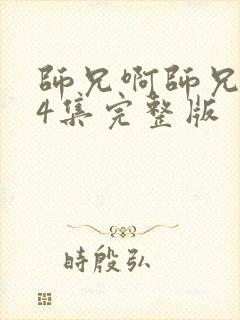 師兄啊師兄
4集完整版
時殷弘